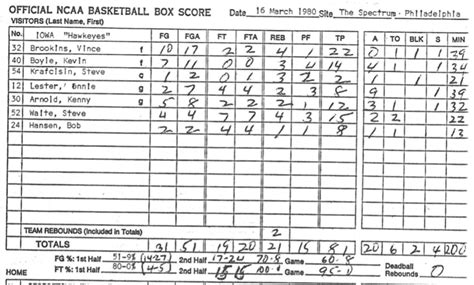 OFFICIAL NCAA BASKETBALL BOX SCORE Date 16 March 1980 Site The Spectrum - Philadelphia
VISITORS (Last Name, First)
No. IOWA "Hawkeyes" FG FGA FT FTA REB PF TP A TO BLK S MIN
32 Brookins, Vince f 10 17 2 2 22 0 1 1 29
40 Boyle, Kevin f 7 11 0 0 3 4 14 4 1 34
54 Krafcisin, Steve c 1 2 21
12 Lester, Ronnie g 4 4 2 3 8 9 39
30 Arnold, Kenny g 5 8 2 2 2 1 12 3 1 32
52 Waite, Steve 4 4 7 7 4 3 15 2 2 22
24 Hansen, Bob 2 2 4 4 1 1 8 1 13
TEAM REBOUNDS (Included in Totals) 2
TOTALS 31 51 19 20 21 15 81 20 6 2 4 200
FG %: 1st Half 51-9% (14-27) 2nd Half 17-24 70.8 Game 60.8
HOME FT %: 1st Half 80-0% (4-5) 2nd Half 15 15 100.0 Game 95-0 Deadball Rebounds 0